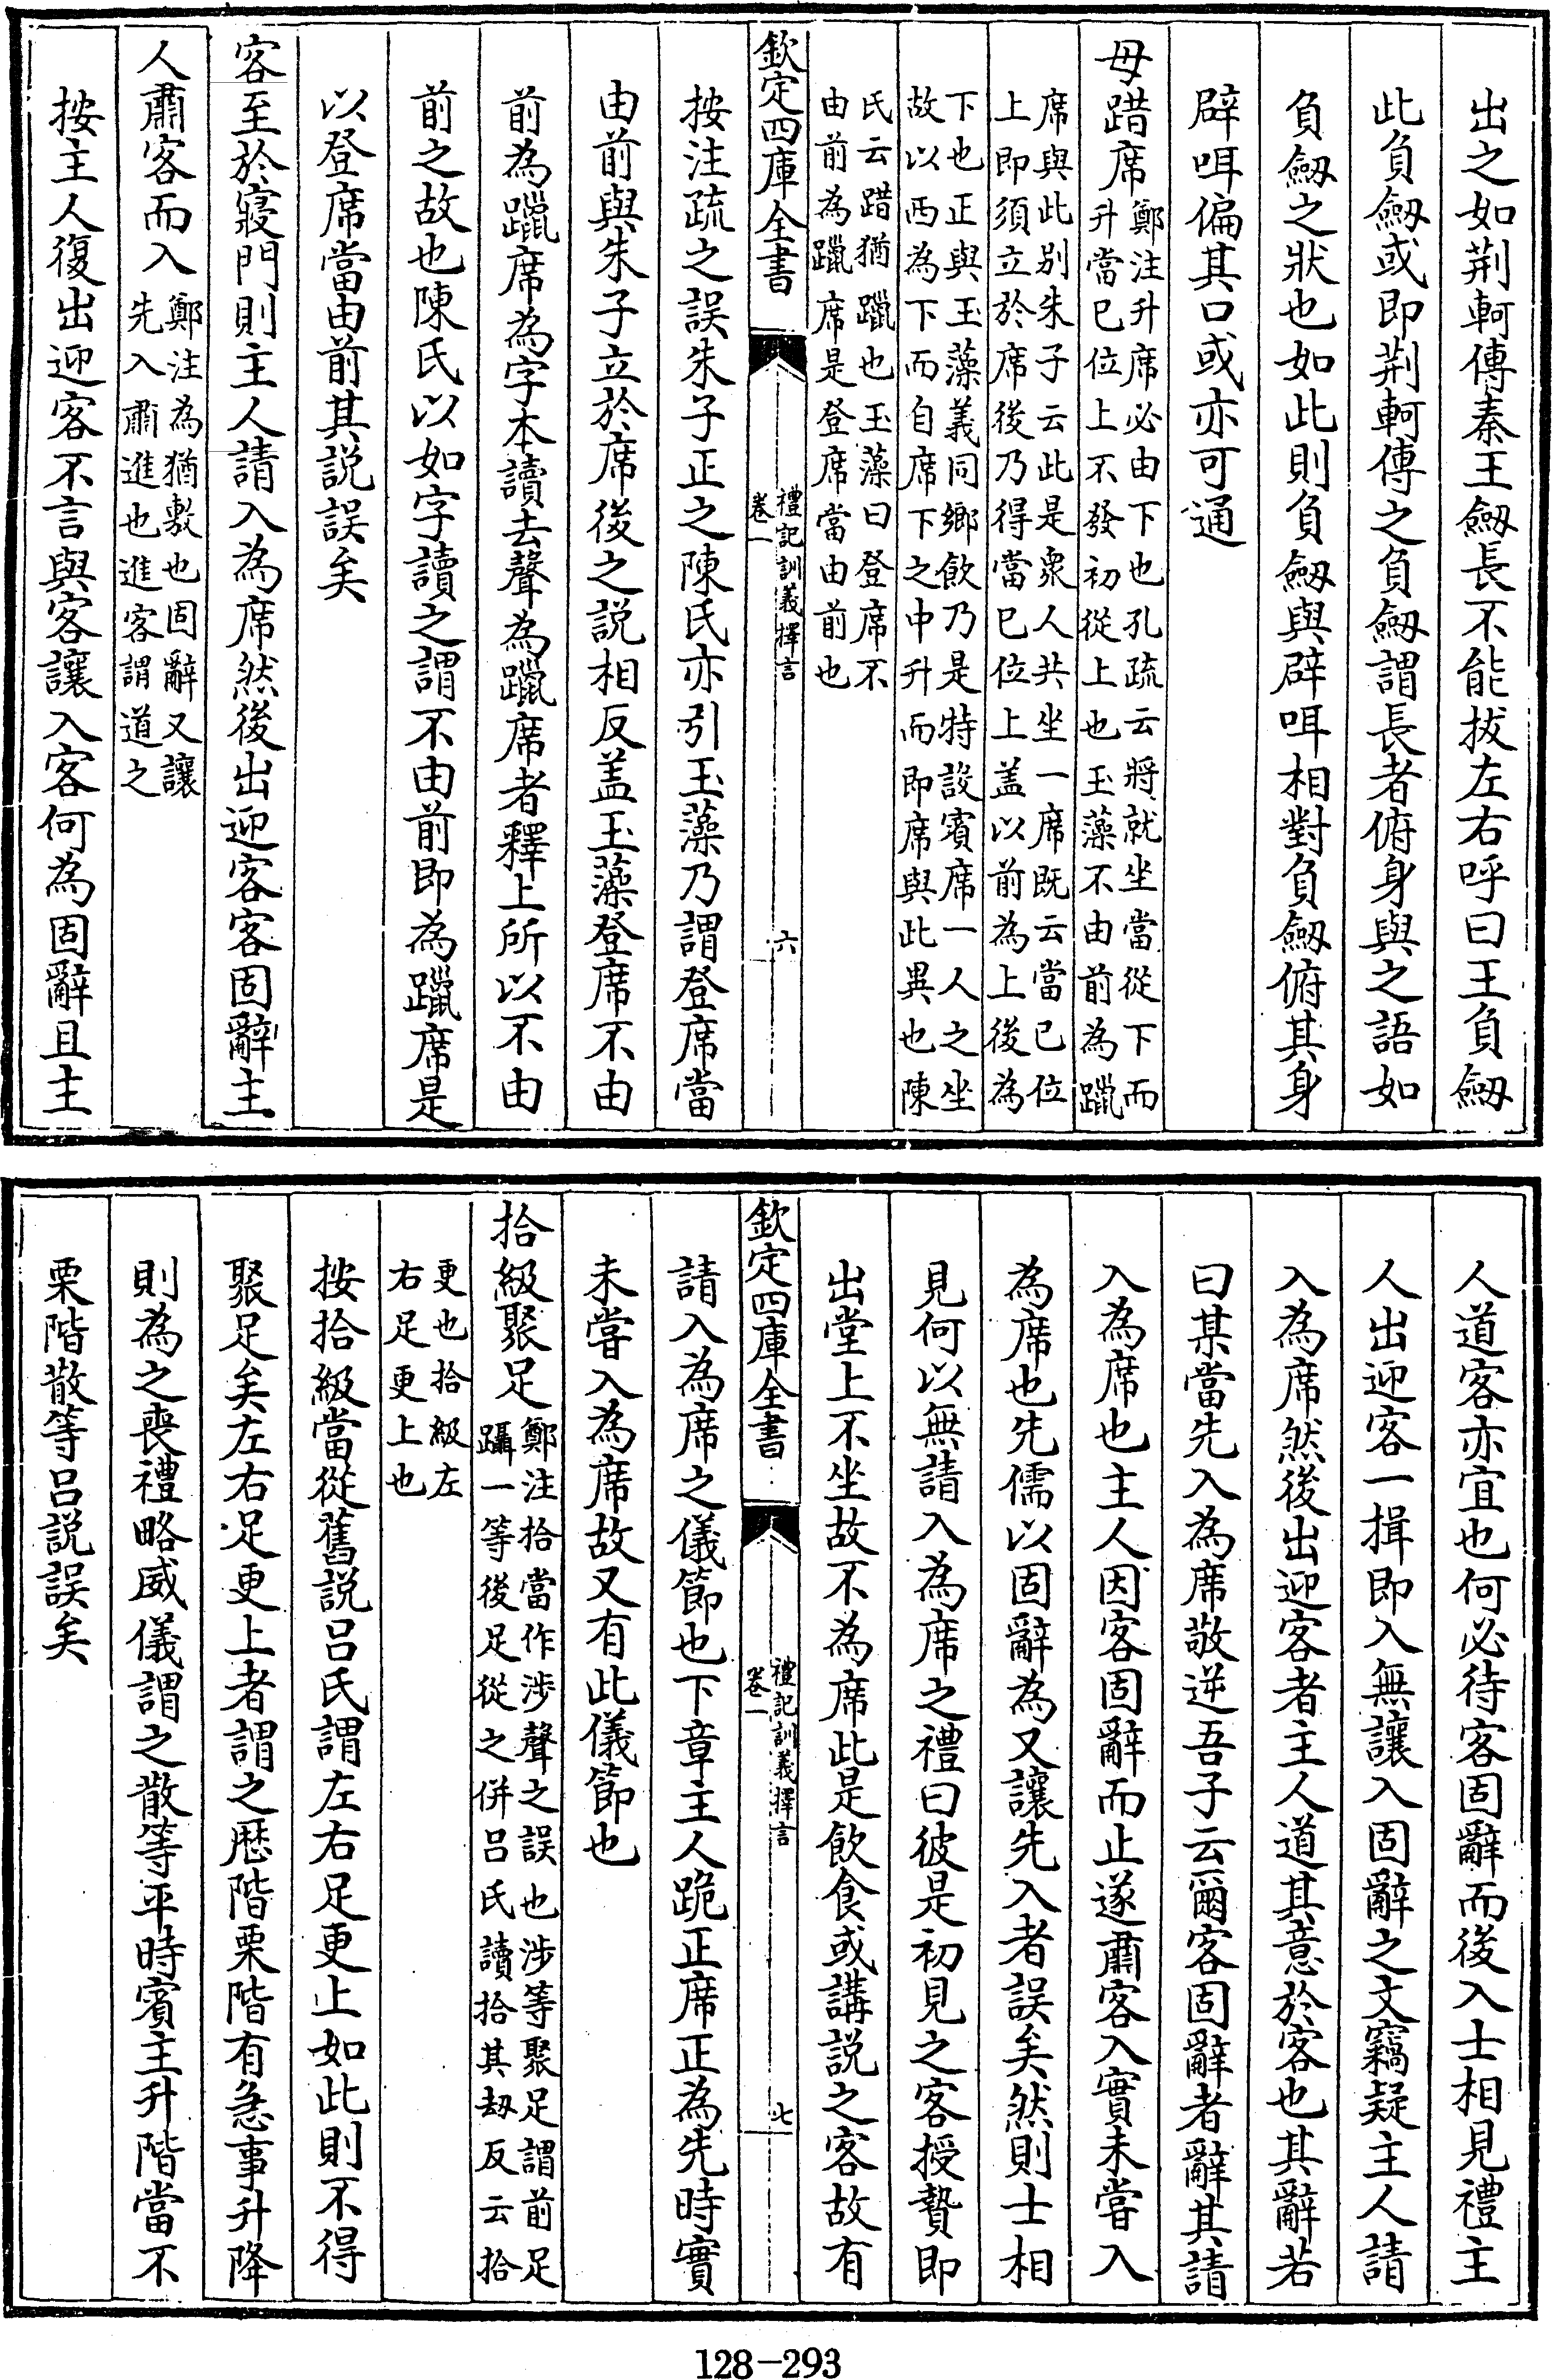 出之如荆軻傳秦王劒長不能拔左右呼曰王負劒
此負劒或即荆軻傳之負劒謂長者俯身與之語如
負劒之狀也如此則負劒與辟咡相對負劒俯其身
辟咡偏其口或亦可通
毋踖席鄭注升席必由下也孔疏云將就坐當從下而
升當已位上不發初從上也玉藻不由前為躐
席與此别朱子云此是衆人共坐一席既云當已位
上即須立於席後乃得當已位上盖以前為上後為
下也正與玉藻義同鄉飲乃是特設賓席一人之坐
故以西為下而自席下之中升而即席與此異也陳
氏云踖猶躐也玉藻曰登席不
由前為躐席是登席當由前也
欽定四庫全書
禮記訓義擇言
卷一
六
按注疏之誤朱子正之陳氏亦引玉藻乃謂登席當
由前與朱子立於席後之説相反盖玉藻登席不由
前為躐席為字本讀去聲為躐席者釋上所以不由
前之故也陳氏以如字讀之謂不由前即為躐席是
以登席當由前其説誤矣
客至於寢門則主人請入為席然後出迎客客固辭主
人肅客而入鄭注為猶敷也固辭又讓
先入肅進也進客謂道之
按主人復出迎客不言與客讓入客何為固辭且主
人道客亦宜也何必待客固辭而後入士相見禮主
人出迎客一揖即入無讓入固辭之文竊疑主人請
入為席然後出迎客者主人道其意於客也其辭若
曰某當先入為席敬逆吾子云爾客固辭者辭其請
入為席也主人因客固辭而止遂肅客入實未嘗入
為席也先儒以固辭為又讓先入者誤矣然則士相
見何以無請入為席之禮曰彼是初見之客授贄即
出堂上不坐故不為席此是飲食或講説之客故有
欽定四庫全書
禮記訓義擇言
卷一
七
請入為席之儀節也下章主人跪正席正為先時實
未嘗入為席故又有此儀節也
拾級聚足鄭注拾當作涉聲之誤也涉等聚足謂前足
躡一等後足從之併吕氏讀拾其刼反云拾
更也拾級左
右足更上也
按拾級當從舊説吕氏謂左右足更上如此則不得
聚足矣左右足更上者謂之歴階栗階有急事升降
則為之喪禮略威儀謂之散等平時賓主升階當不
栗階散等吕説誤矣
128-293